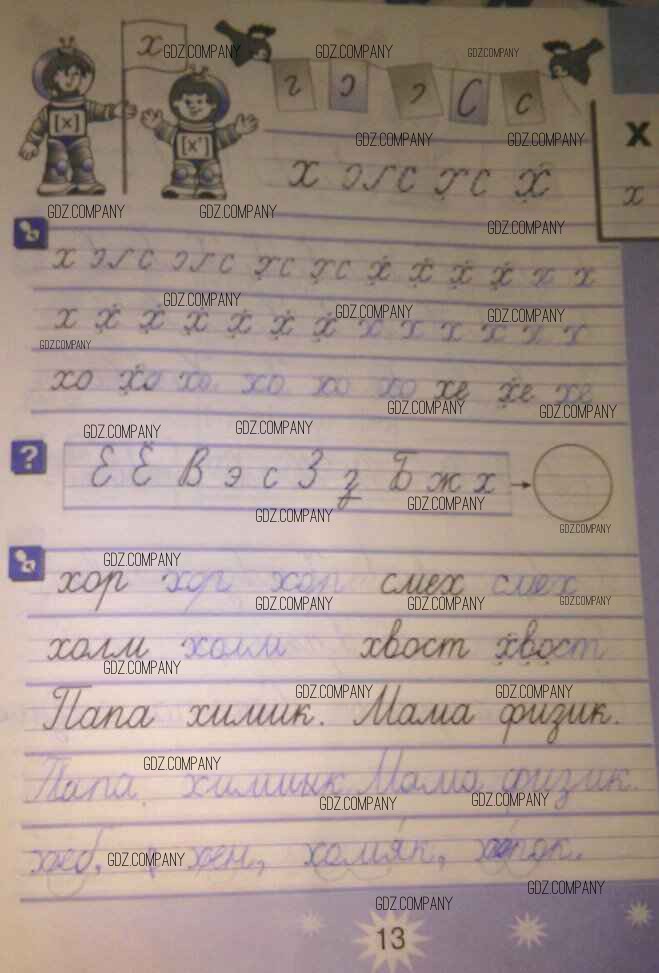 х GDZ.COMPANY GDZ.COMPANY GDZ.COMPANY
с с
[х] [х']
GDZ.COMPANY GDZ.COMPANY
х с с х
х
х
GDZ.COMPANY GDZ.COMPANY GDZ.COMPANY
х с с с с х х х х х х
GDZ.COMPANY GDZ.COMPANY GDZ.COMPANY
х х х х х х х х х х х х х
GDZ.COMPANY
хо хо хо хо хо хо хе хе хе
GDZ.COMPANY GDZ.COMPANY
GDZ.COMPANY GDZ.COMPANY
? Е Ё В э с З з Б ж х
GDZ.COMPANY GDZ.COMPANY GDZ.COMPANY
GDZ.COMPANY
хор хор хор смех смех
GDZ.COMPANY GDZ.COMPANY GDZ.COMPANY
холм холм хвост хвост
GDZ.COMPANY
GDZ.COMPANY GDZ.COMPANY
Папа химик. Мама физик.
GDZ.COMPANY
Папа химик Мама физик.
GDZ.COMPANY GDZ.COMPANY
GDZ.COMPANY хомяк,
GDZ.COMPANY
GDZ.COMPANY
13